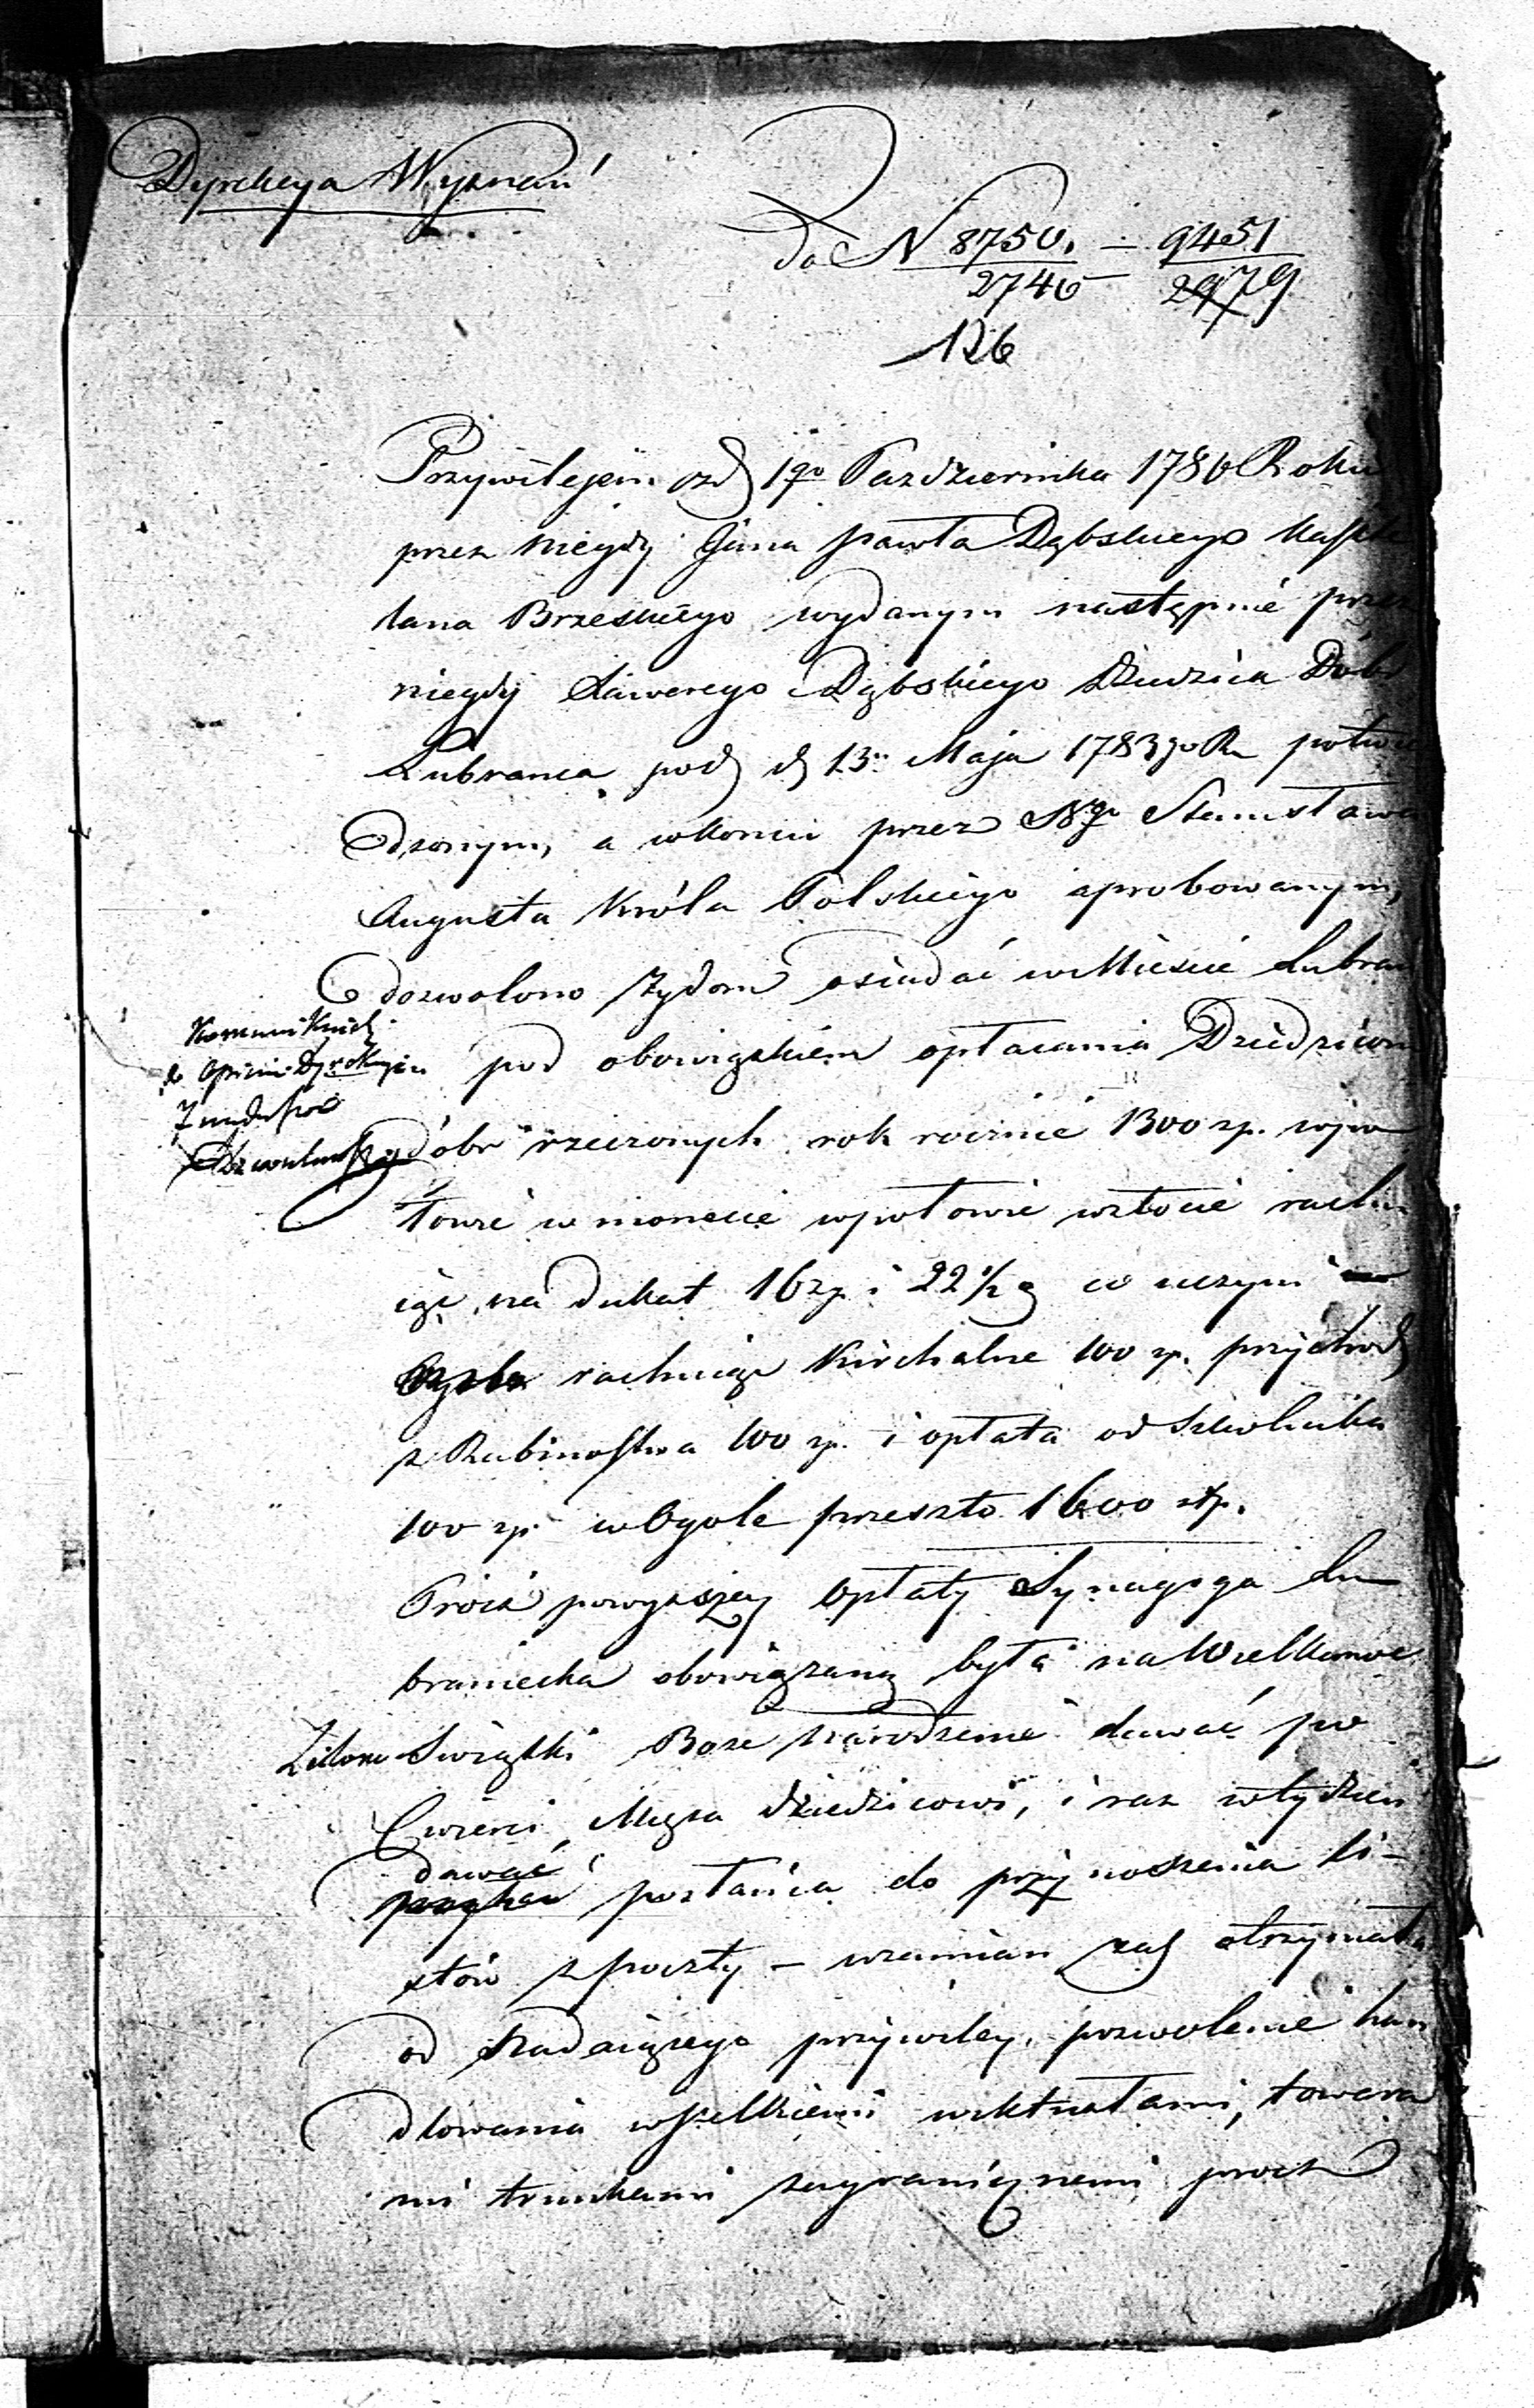 Dyrekcya Wyznań
Do N 8750. — 9451
2746 — 2979
126
Przywilejem z d 1go Pazdziernika 1780 Roku
przez niegdy Jana Pawła Dąbskiego Kaszte
lana Brzeskiego wydanym następnie przez
niegdy Xawerego Dąbskiego Dziedzica Dóbr
Lubrańca pod d 13 Maja 1783go R. potwier
dzonym, a wkońcu przez Ngo Stanisława
Augusta Króla Polskiego aprobowanym,
dozwolono Żydom osiadać w Mieście Lubrań
Kommunik
do Opinii Dyrekcyi
Przemysłu
pod obowiązkiem opłacania Dziedzicom
dóbr rzeczonych rok rocznie 1300 zp. wpo
łowie w monecie wpołowie wzłocie rachu
iąc na dukat 16 zp. i 22½ g w
rachując Kirchalne 100 zp. przychod
z Rabinostwa 100 zp. i opłata od Szkolnika
100 zp. wOgole przeszło 1600 złp.
Prócz powyższey opłaty Synagoga Lu
braniecka obowiązaną była na Wielkanoc
Zielone Swiątki Boże Narodzenie dawać po
Cwierci Mięsa dziedzicowi, i raz wtydzień
dawać posłańca do przynoszenia li-
stów z poczty — wzamian zaś otrzymała
od Nadaiącego przywiley, pozwolenie han
dlowania wszelkiemi wiktuałami, towara
mi trunkami zagranicznemi prócz